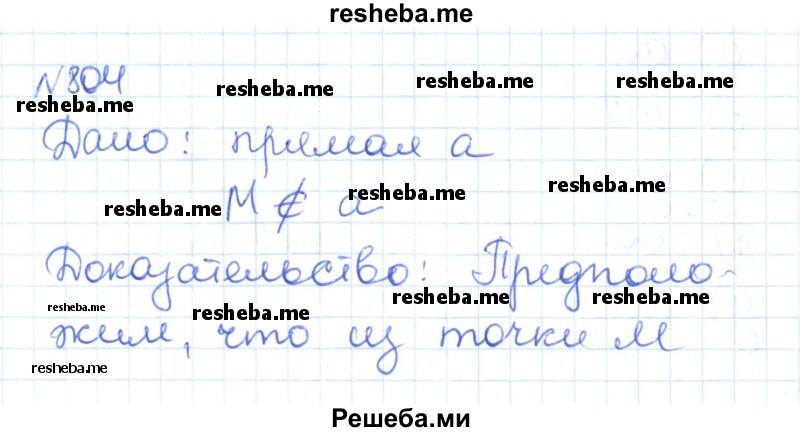 resheba.me
N 804
resheba.me resheba.me resheba.me resheba.me
Дано: прямая a
M ∉ a
resheba.me resheba.me resheba.me
Доказательство: Предполо-
resheba.me resheba.me resheba.me resheba.me
жим, что из точки M
resheba.me
Решеба.ми